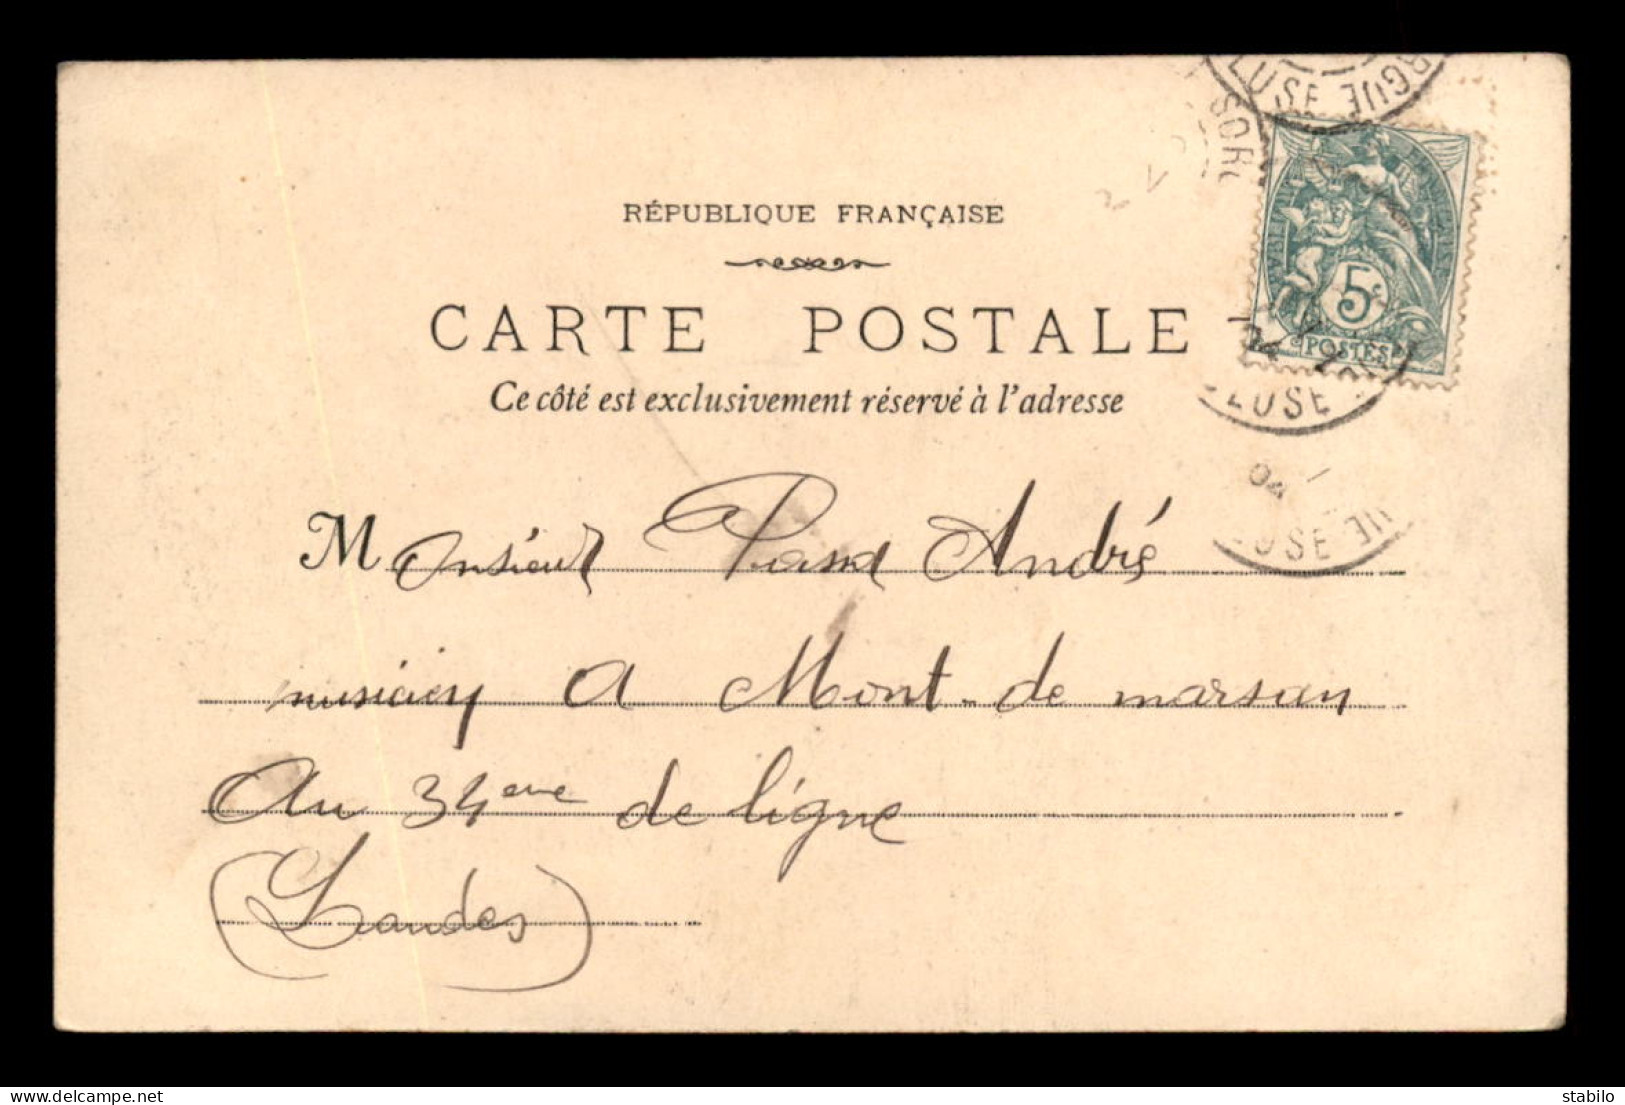 RÉPUBLIQUE FRANÇAISE
CARTE POSTALE
Ce côté est exclusivement réservé à l'adresse
Monsieur André
musicien a Mont-de marsan
Au 34eme de ligne
(Landes)
5c
POSTES
SOR
RGUE
LUSE
04
LUSE
04
LUSE
UE
stabilo